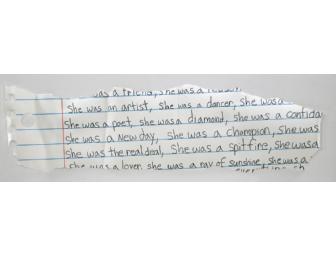 was a friend, she was a
She was an artist, she was a dancer, she was a
She was a poet, she was a diamond, she was a confida
She was a new day, she was a champion, she was
She was the real deal, she was a spitfire, she was a
She was a lover, she was a ray of sunshine, she was a